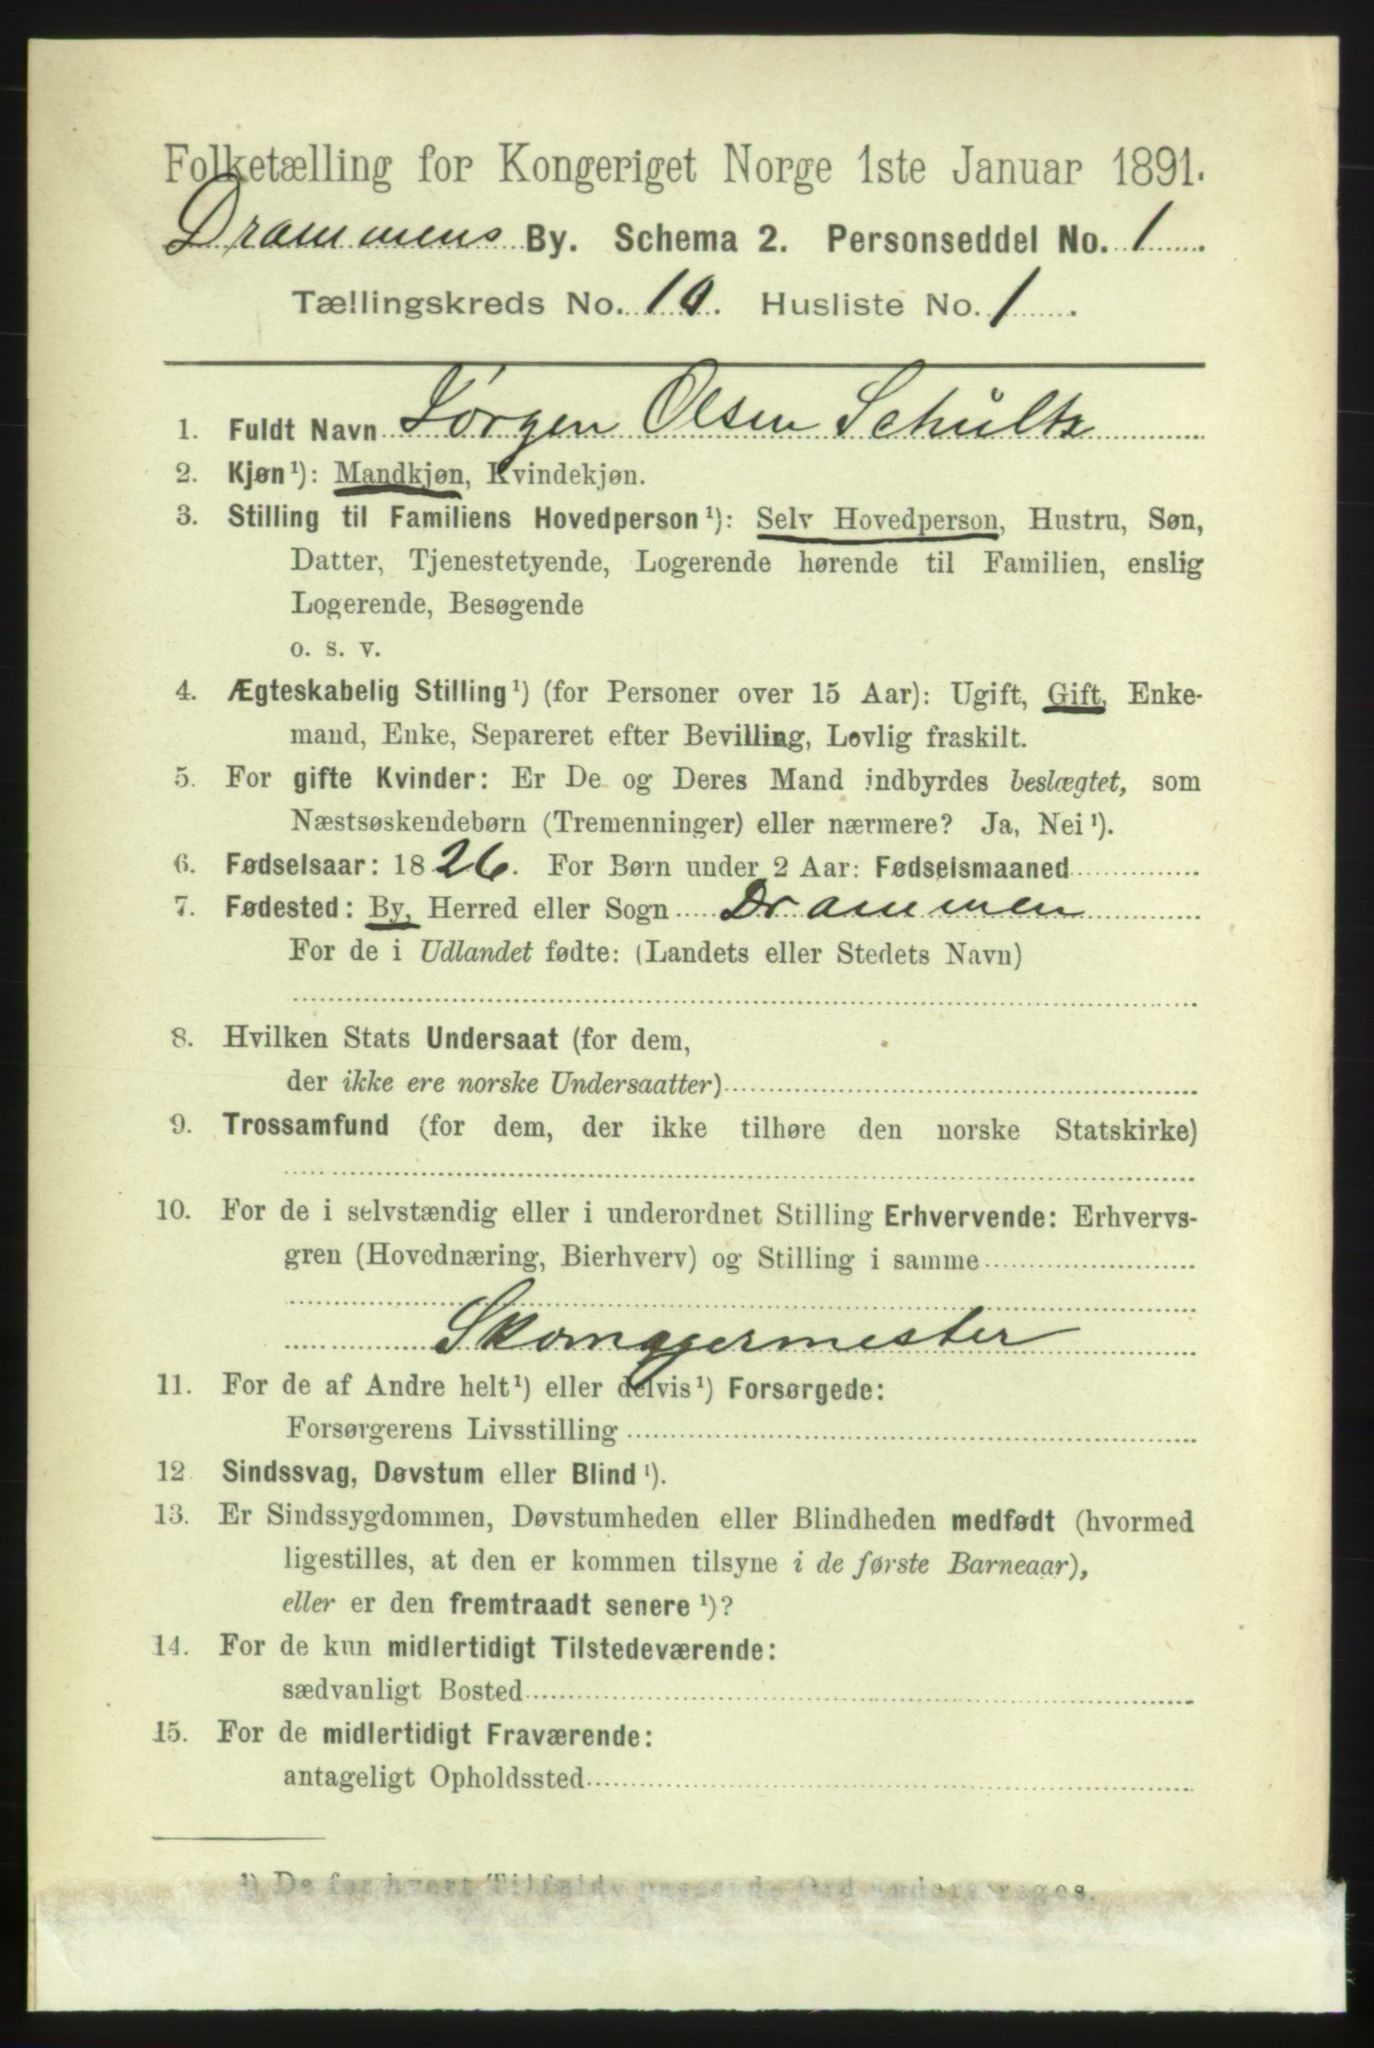 Folketælling for Kongeriget Norge 1ste Januar 1891.
Drammens By. Schema 2. Personseddel No. 1
Tællingskreds No. 10. Husliste No. 1.
1. Fuldt Navn Jørgen Olsen Schultz
2. Kjøn¹): Mandkjøn, Kvindekjøn.
3. Stilling til Familiens Hovedperson¹): Selv Hovedperson, Hustru, Søn,
Datter, Tjenestetyende, Logerende hørende til Familien, enslig
Logerende, Besøgende
o. s. v.
4. Ægteskabelig Stilling¹) (for Personer over 15 Aar): Ugift, Gift, Enke-
mand, Enke, Separeret efter Bevilling, Lovlig fraskilt.
5. For gifte Kvinder: Er De og Deres Mand indbyrdes beslægtet, som
Næstsøskendebørn (Tremenninger) eller nærmere? Ja, Nei¹).
6. Fødselsaar: 1826. For Børn under 2 Aar: Fødselsmaaned
7. Fødested: By, Herred eller Sogn Drammen
For de i Udlandet fødte: (Landets eller Stedets Navn)
8. Hvilken Stats Undersaat (for dem,
der ikke ere norske Undersaatter)
9. Trossamfund (for dem, der ikke tilhøre den norske Statskirke)
10. For de i selvstændig eller i underordnet Stilling Erhvervende: Erhvervs-
gren (Hovednæring, Bierhverv) og Stilling i samme
Skomagermester
11. For de af Andre helt¹) eller delvis¹) Forsørgede:
Forsørgerens Livsstilling
12 Sindssvag, Døvstum eller Blind¹).
13. Er Sindssygdommen, Døvstumheden eller Blindheden medfødt (hvormed
ligestilles, at den er kommen tilsyne i de første Barneaar),
eller er den fremtraadt senere¹)?
14. For de kun midlertidigt Tilstedeværende:
sædvanligt Bosted
15. For de midlertidigt Fraværende:
antageligt Opholdssted
¹) De for hvert Tilfælde passende Ord understreges.